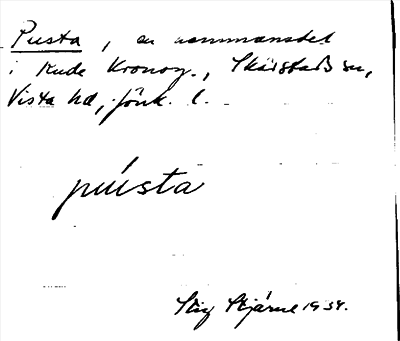 Pusta, en
i Rude Kronog., Skärstads sn,
Vista hd, Jönk. l.
pústa
Stig Stjärne 1934.